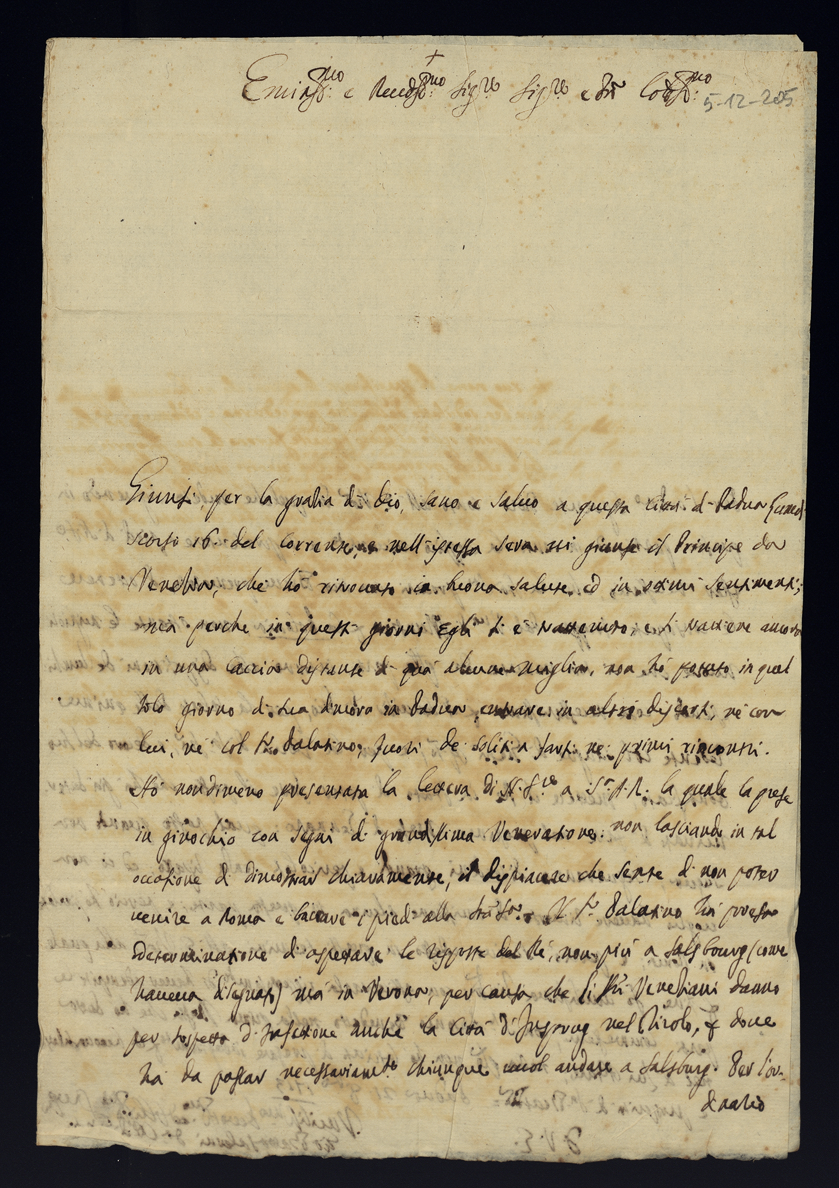 +
Emin.mo e Reved.mo Sig.re Sig.re e Pñ Col.mo
5-12-205
Giunsi, per la gratia di Dio, sano e salvo a questa Città di Padua
scorso 16 del corrente, e nell'istessa sera vi giunse il Principe da
Venetia, che hò ritrovato in buona salute, ed in ottimi sentimenti;
mà perche in questi giorni Egli si è trattenuto, e si trattiene ancora
in una Caccia distante di quà alcune miglia, non hò potuto in quel
solo giorno di sua dimora in Padua, entrare in altri discorsi, nè con
lui, nè col Palatino, fuori de soliti a farsi ne primi rincontri.
Hò nondimeno presentata la lettera di N. S.re a S. A. R. la quale la prese
in ginochio con segni di grandissima Veneratione. non lasciando in tal
occasione di dimostrar chiaramente, il dispiacere che sente di non poter
venire à Roma e baciare i piedi alla Il Palatino hà preso
determinatione di aspettare le risposte del Rè, non più a Salsbourg (come
haveva disegnato) mà in Verona, per causa che li Venetiani danno
per sospetta d'Infettione anche la Città d'Insprug nel Tirolo, dove
hà da passar necessariam.te chiunque vuol andare a Salsburg. Per l'or-
dinario